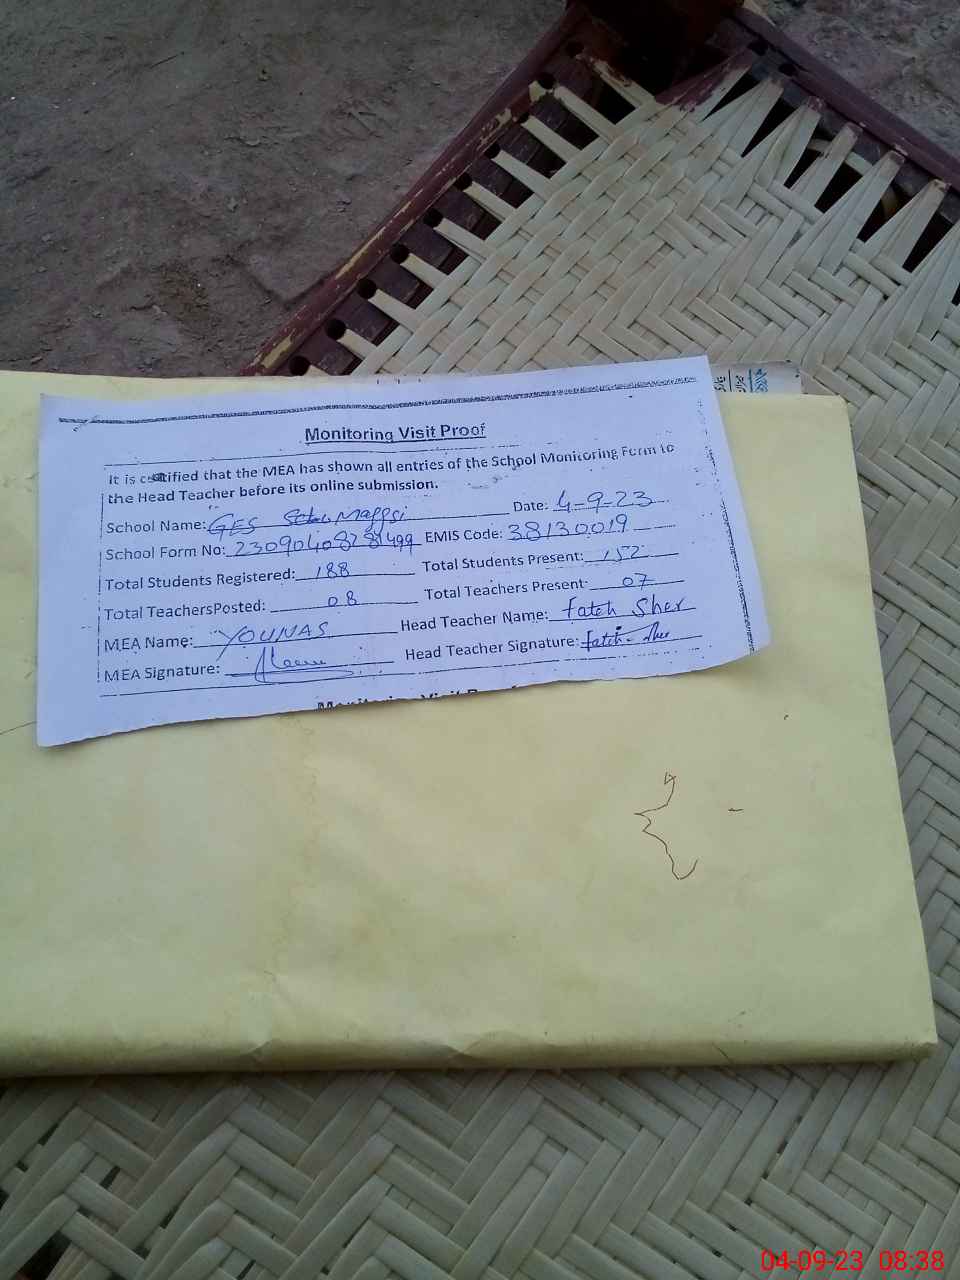 Monitoring Visit Proof
It is certified that the MEA has shown all entries of the School Monitoring Form to
the Head Teacher before its online submission.
School Name: GES Maggsi Date: 4-9-23
School Form No: EMIS Code: 38130019
Total Students Registered: 188 Total Students Present: 152
Total TeachersPosted: 08 Total Teachers Present: 07
MEA Name: YOUNAS Head Teacher Name: Fateh Sher
MEA Signature: Head Teacher Signature: Fateh Sher
Monitoring Visit Proof
04-09-23 08:38